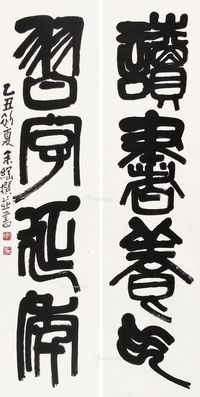 讀書養氣
習字延年
乙丑初夏朱繇撰並書